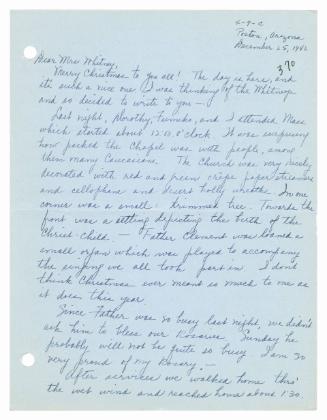 6-9-C
Poston, Arizona
December 25, 1942
370
Dear Mrs. Whitney,
Merry Christmas to you all! The day is here, and
it's such a nice one. I was thinking of the Whitneys
and so decided to write to you —.
Last night, Dorothy, Fumiko, and I attended Mass
which started about 12:00 o'clock. It was surprising
how packed the Chapel was with people, among
them many Caucasians. The Church was very nicely
decorated with red and green crepe paper streamers
and cellophane and desert holly wreaths. In one
corner was a small trimmed tree. Towards the
font was a setting depicting the birth of the
Christ-Child. — Father Clement was loaned a
small organ which was played to accompany
the singing we all took part in. I don't
think Christmas ever meant so much to me as
it does this year.
Since Father was so busy last night, we didn't
ask him to bless our Rosaries. Sunday he
probably will not be quite so busy. I am so
very proud of my Rosary —
After services we walked home thro'
the wet wind and reached home about 1:30.